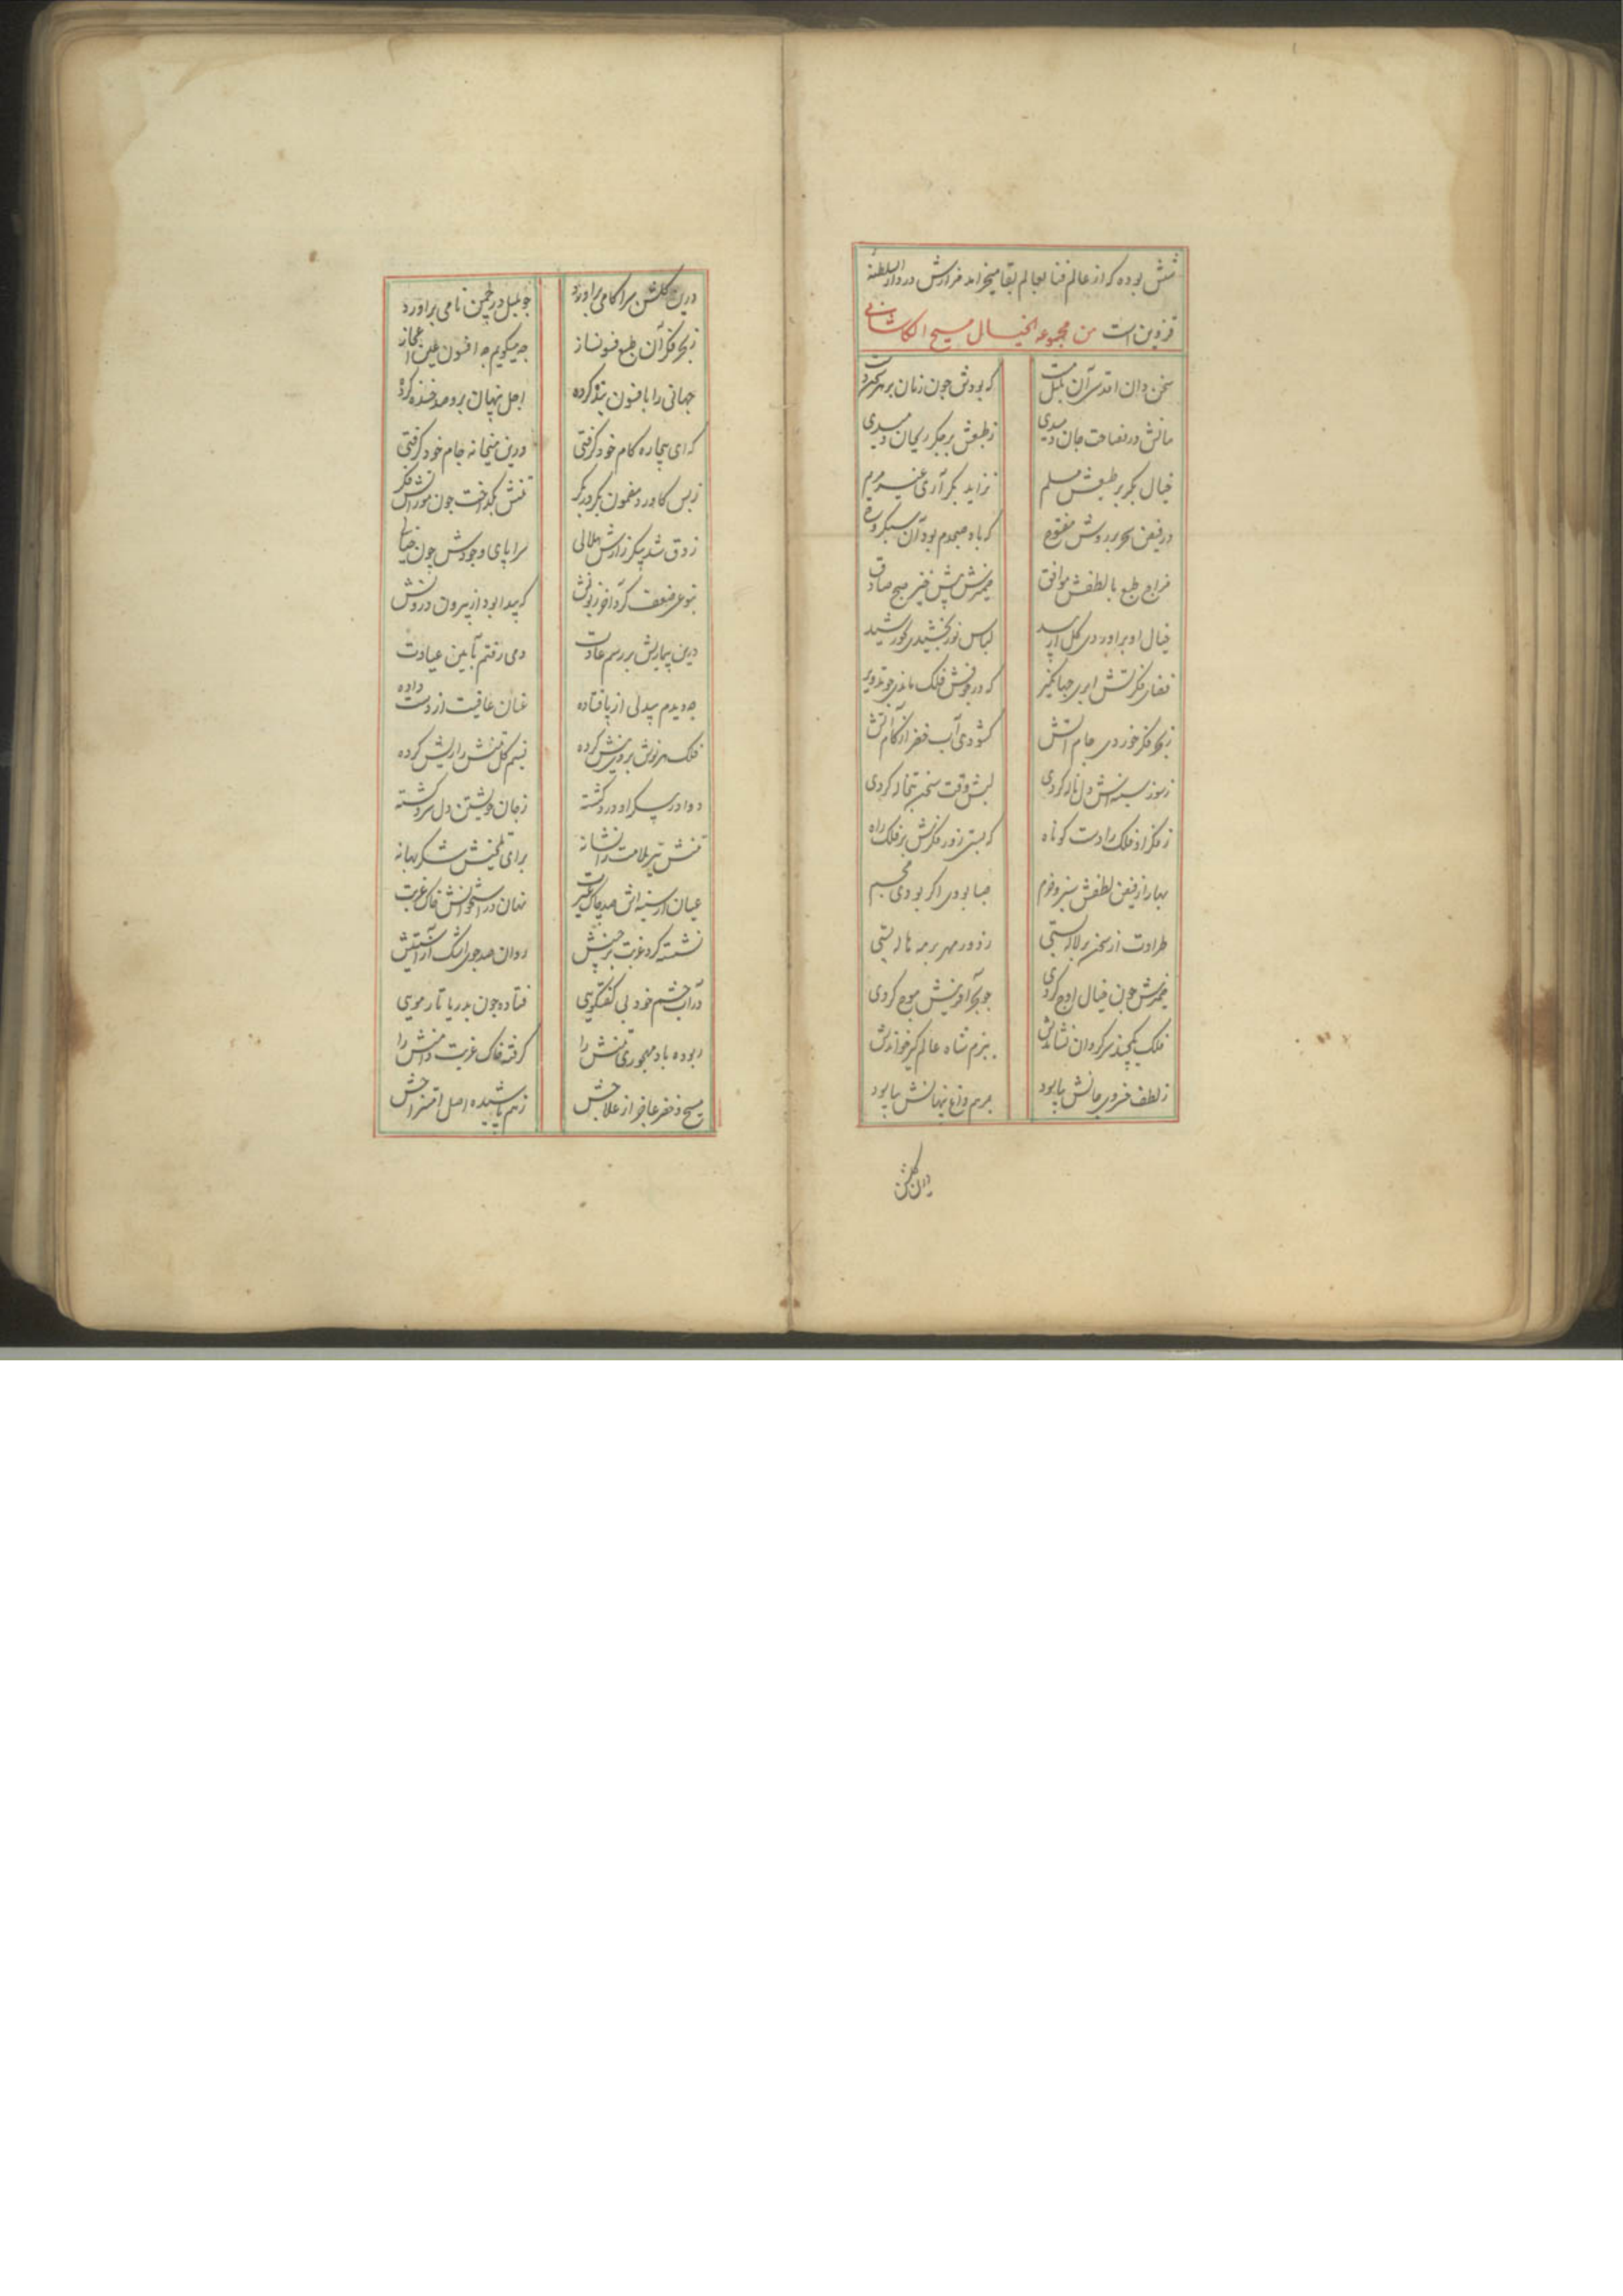 شش بوده که از عالم فنا بعالم بقا میخرامد مزارش در دار السلطنه
قزوین است من مجموعه الخیال مسیح الکاشانی
سخن دان اقدسی آن بلبل مست که بودش چون زبان بر هر
در فصاحت جان دمیدی ز طبعش بر جگر ریحان دمیدی
خیال بکر بر طبعش مسلم نزاید بکر آری غیر مریم
در فیض سحر بر روش مفتوح که باد صبحدم بود آن سبکروح
مزاج طبع با لطفش موافق ضمیرش پیش خیز صبح صادق
خیال او بر او بردی لباس نور بخشیدی بخورشید
فضای فکرتش ابری جهانگیر که در فلک ماندی چو تدویر
ز بحر فکر خوردی جام آتش گشودی آب خضر از کام آتش
ز سوز سینه اش دل ناله کردی لبش وقت سخن تبخاله کردی
ز فکر او فلک را دست کوتاه که بستی زور فکرش بر فلک راه
بهار از فیض لطفش سبز و خرم صبا بودی اگر بودی مجسم
طراوت از سخن بر لاله بستی ز دور مهر بر مه هاله بستی
ضمیرش چون خیال اوج کردی چو بحر آفرینش موج کردی
فلک یکچند سرگردان نشاندش ببزم شاه عالمگیر خواندش
ز لطف خسروی جانش بیاسود بمرهم داغ پنهانش بیاسود
درین گلشن
درین گلشن سرا کامی برآورد چو بلبل در چمن نامی برآورد
ز بحر فکر آن طبع فسونساز چه میگویم چه افسون عین اعجاز
جهانی را بافسون بنده کرده اجل پنهان برو صد خنده کرده
که ای بیچاره کام خود گرفتی درین میخانه جام خود گرفتی
ز بس کاورد مضمون بکر در بکر تنش بگداخت چون مو ز آتش فکر
ز دق شد پیکر زارش هلالی سراپای وجودش چون خیالی
بنوعی ضعف کرد آخر زبونش که پیدا بود از بیرون درونش
درین بیماریش بر رسم عادت دمی رفتم بآیین عیادت
چه دیدم بیدلی از پا فتاده عنان عافیت از دست داده
فلک هر نوش بر وی نیش کرده نسیم گل تنش را ریش کرده
دوا در پیکر او درد گشته ز جان خویشتن دل سرد گشته
تنش تیر ملامت را نشانه برای تلخیش شکر بهانه
عیان از سینه اش صد چاک غیرت نهان در استخوانش خاک غربت
نشسته گرد غربت بر جبینش روان صد جوی اشک از آستینش
در آب چشم خود بی گفتگویی فتاده چون بدریا تار مویی
ربوده باد مهجوری تنش را گرفته خاک غربت دامنش را
مسیح و خضر عاجز از علاجش ز هم پاشیده اصل امتزاجش